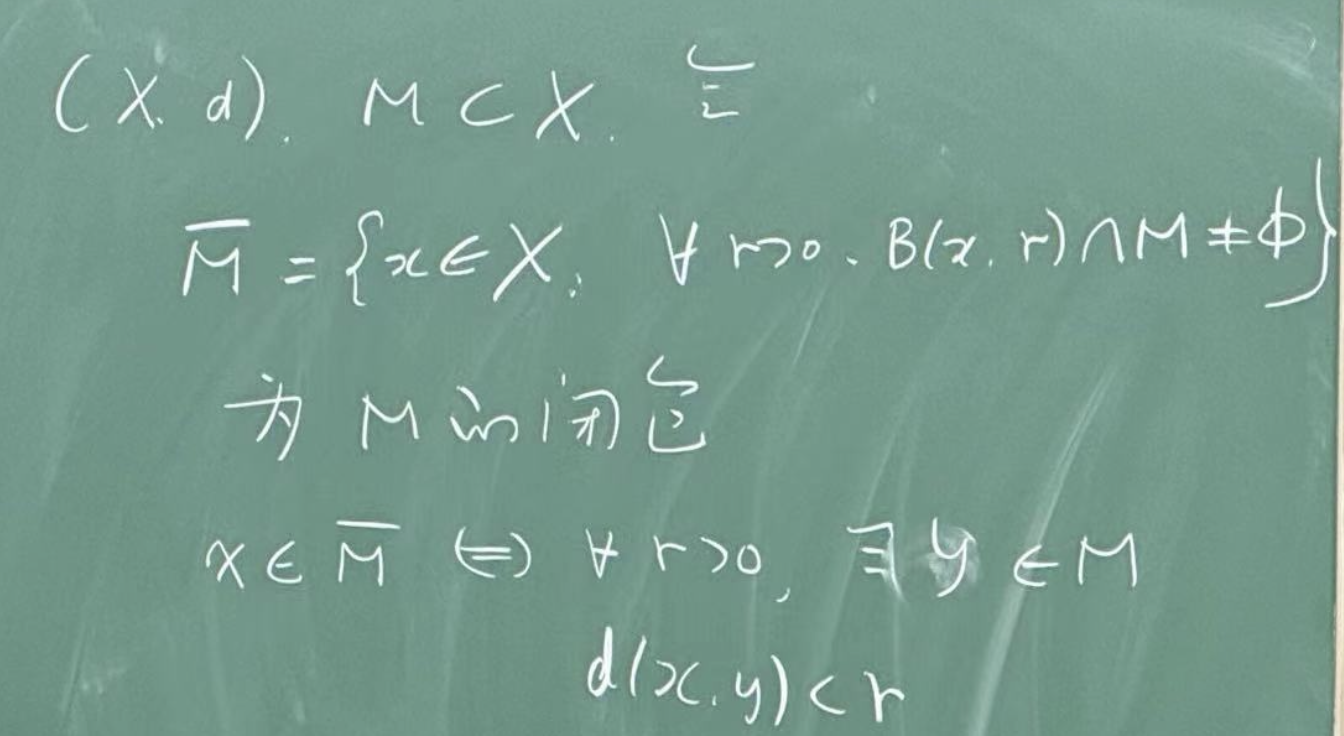 (X, d). M ⊂ X. 称
M̅ = {x ∈ X, ∀ r>0, B(x, r) ∩ M ≠ ϕ}
为 M 的闭包
x ∈ M̅ ⇔ ∀ r>0, ∃ y ∈ M
d(x, y) < r